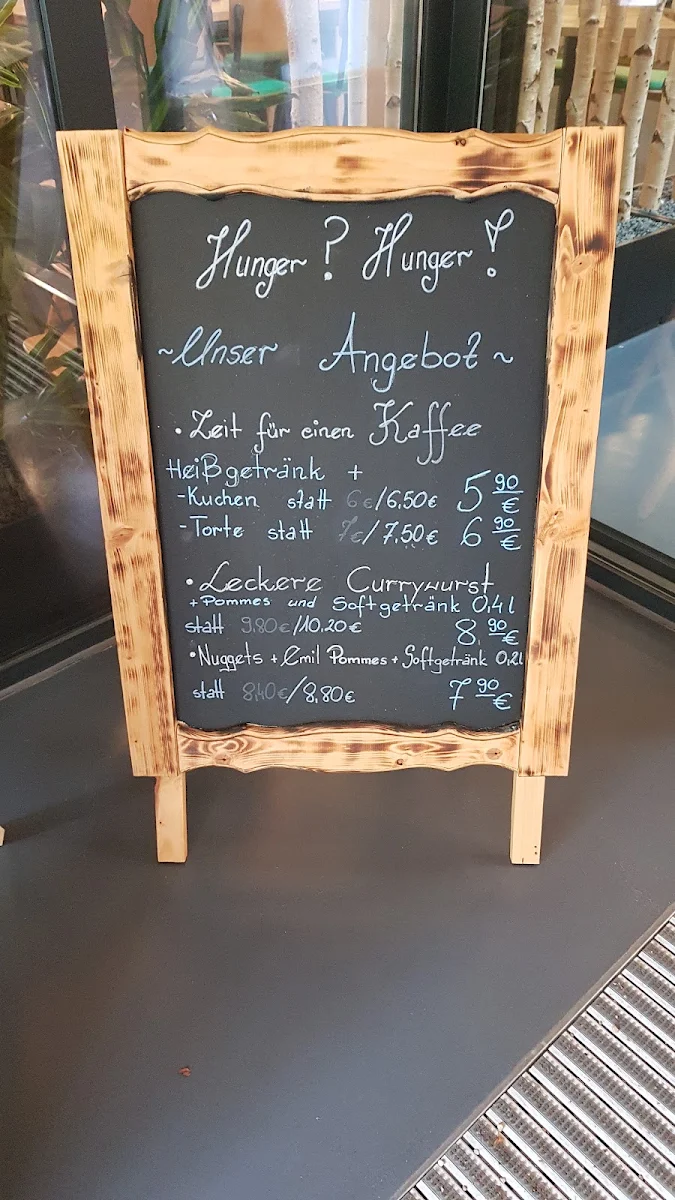 Hunger? Hunger!
~Unser Angebot~
• Zeit für einen Kaffee
Heißgetränk +
- Kuchen statt 6€/6,50€ 5 90 €
- Torte statt 7€/7,50€ 6 90 €
• Leckere Currywurst
+ Pommes und Softgetränk 0,4l
statt 9,80€/10,20€ 8, 90 €
• Nuggets + Emil Pommes + Softgetränk 0,2l
statt 8,40€/8,80€ 7 90 €